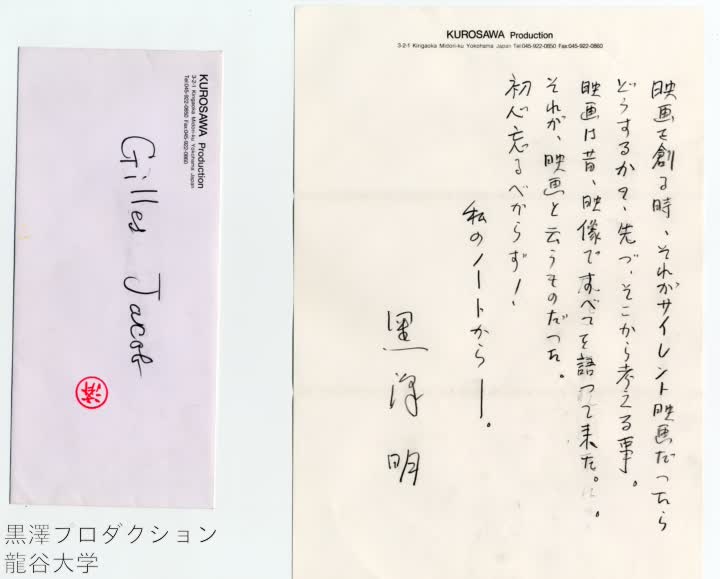 KUROSAWA Production
3-2-1 Kirigaoka Midori-ku Yokohama Japan
Tel:045-922-0850 Fax:045-922-0860
Gilles Jacob
済
KUROSAWA Production
3-2-1 Kirigaoka Midori-ku Yokohama Japan Tel:045-922-0850 Fax:045-922-0860
映画を創る時、それがサイレント映画だったら
どうするか?、先づ、そこから考える事。
映画は昔、映像ですべてを語って来た。
それが、映画と云うものだった。
初心忘るべからず!
私のノートから—。
黒澤明
黒澤プロダクション
龍谷大学